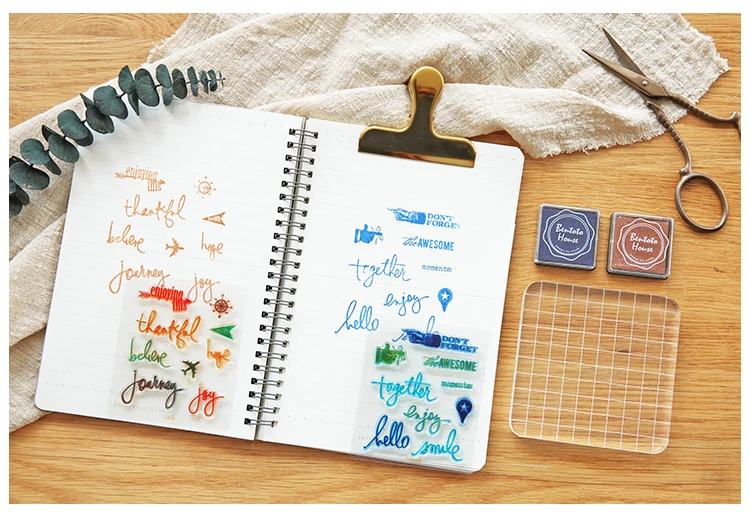 enjoying
this
thankful
believe
hope
journey
joy
enjoying
this
thankful
believe
hope
journey
joy
DON'T
FORGET
the AWESOME
together
moments
enjoy
hello
DON'T
FORGET
the AWESOME
together
moments
enjoy
hello
smile
Bentoto
House
Bentoto
House